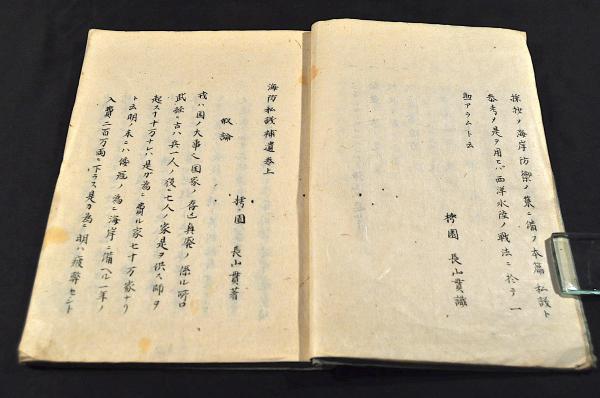 採抄メ海岸防禦ノ集ニ備フ本篇私議ト
参考メ是ヲ用ヒバ西洋水陸ノ戦法ニ於テ一
助アラムト云
樗園 長山貫識
海防私議補遺巻上
樗園 長山貫著
叙論
我ハ国ノ大事ヘ国家ノ存亡興廃ノ係ル所ロ
武経ニ古ハ兵一人ノ後ニ七人ノ家是ヲ供ス師ヲ
起ス十万ナレハ是カ為ニ費ル家七十万家ナリ
ト云明ノ末ニハ倭寇ノ為ニ海岸ニ備ヘル一年ノ
入費二百万両ニ下ラス是カ為ニ明ハ疲弊セント